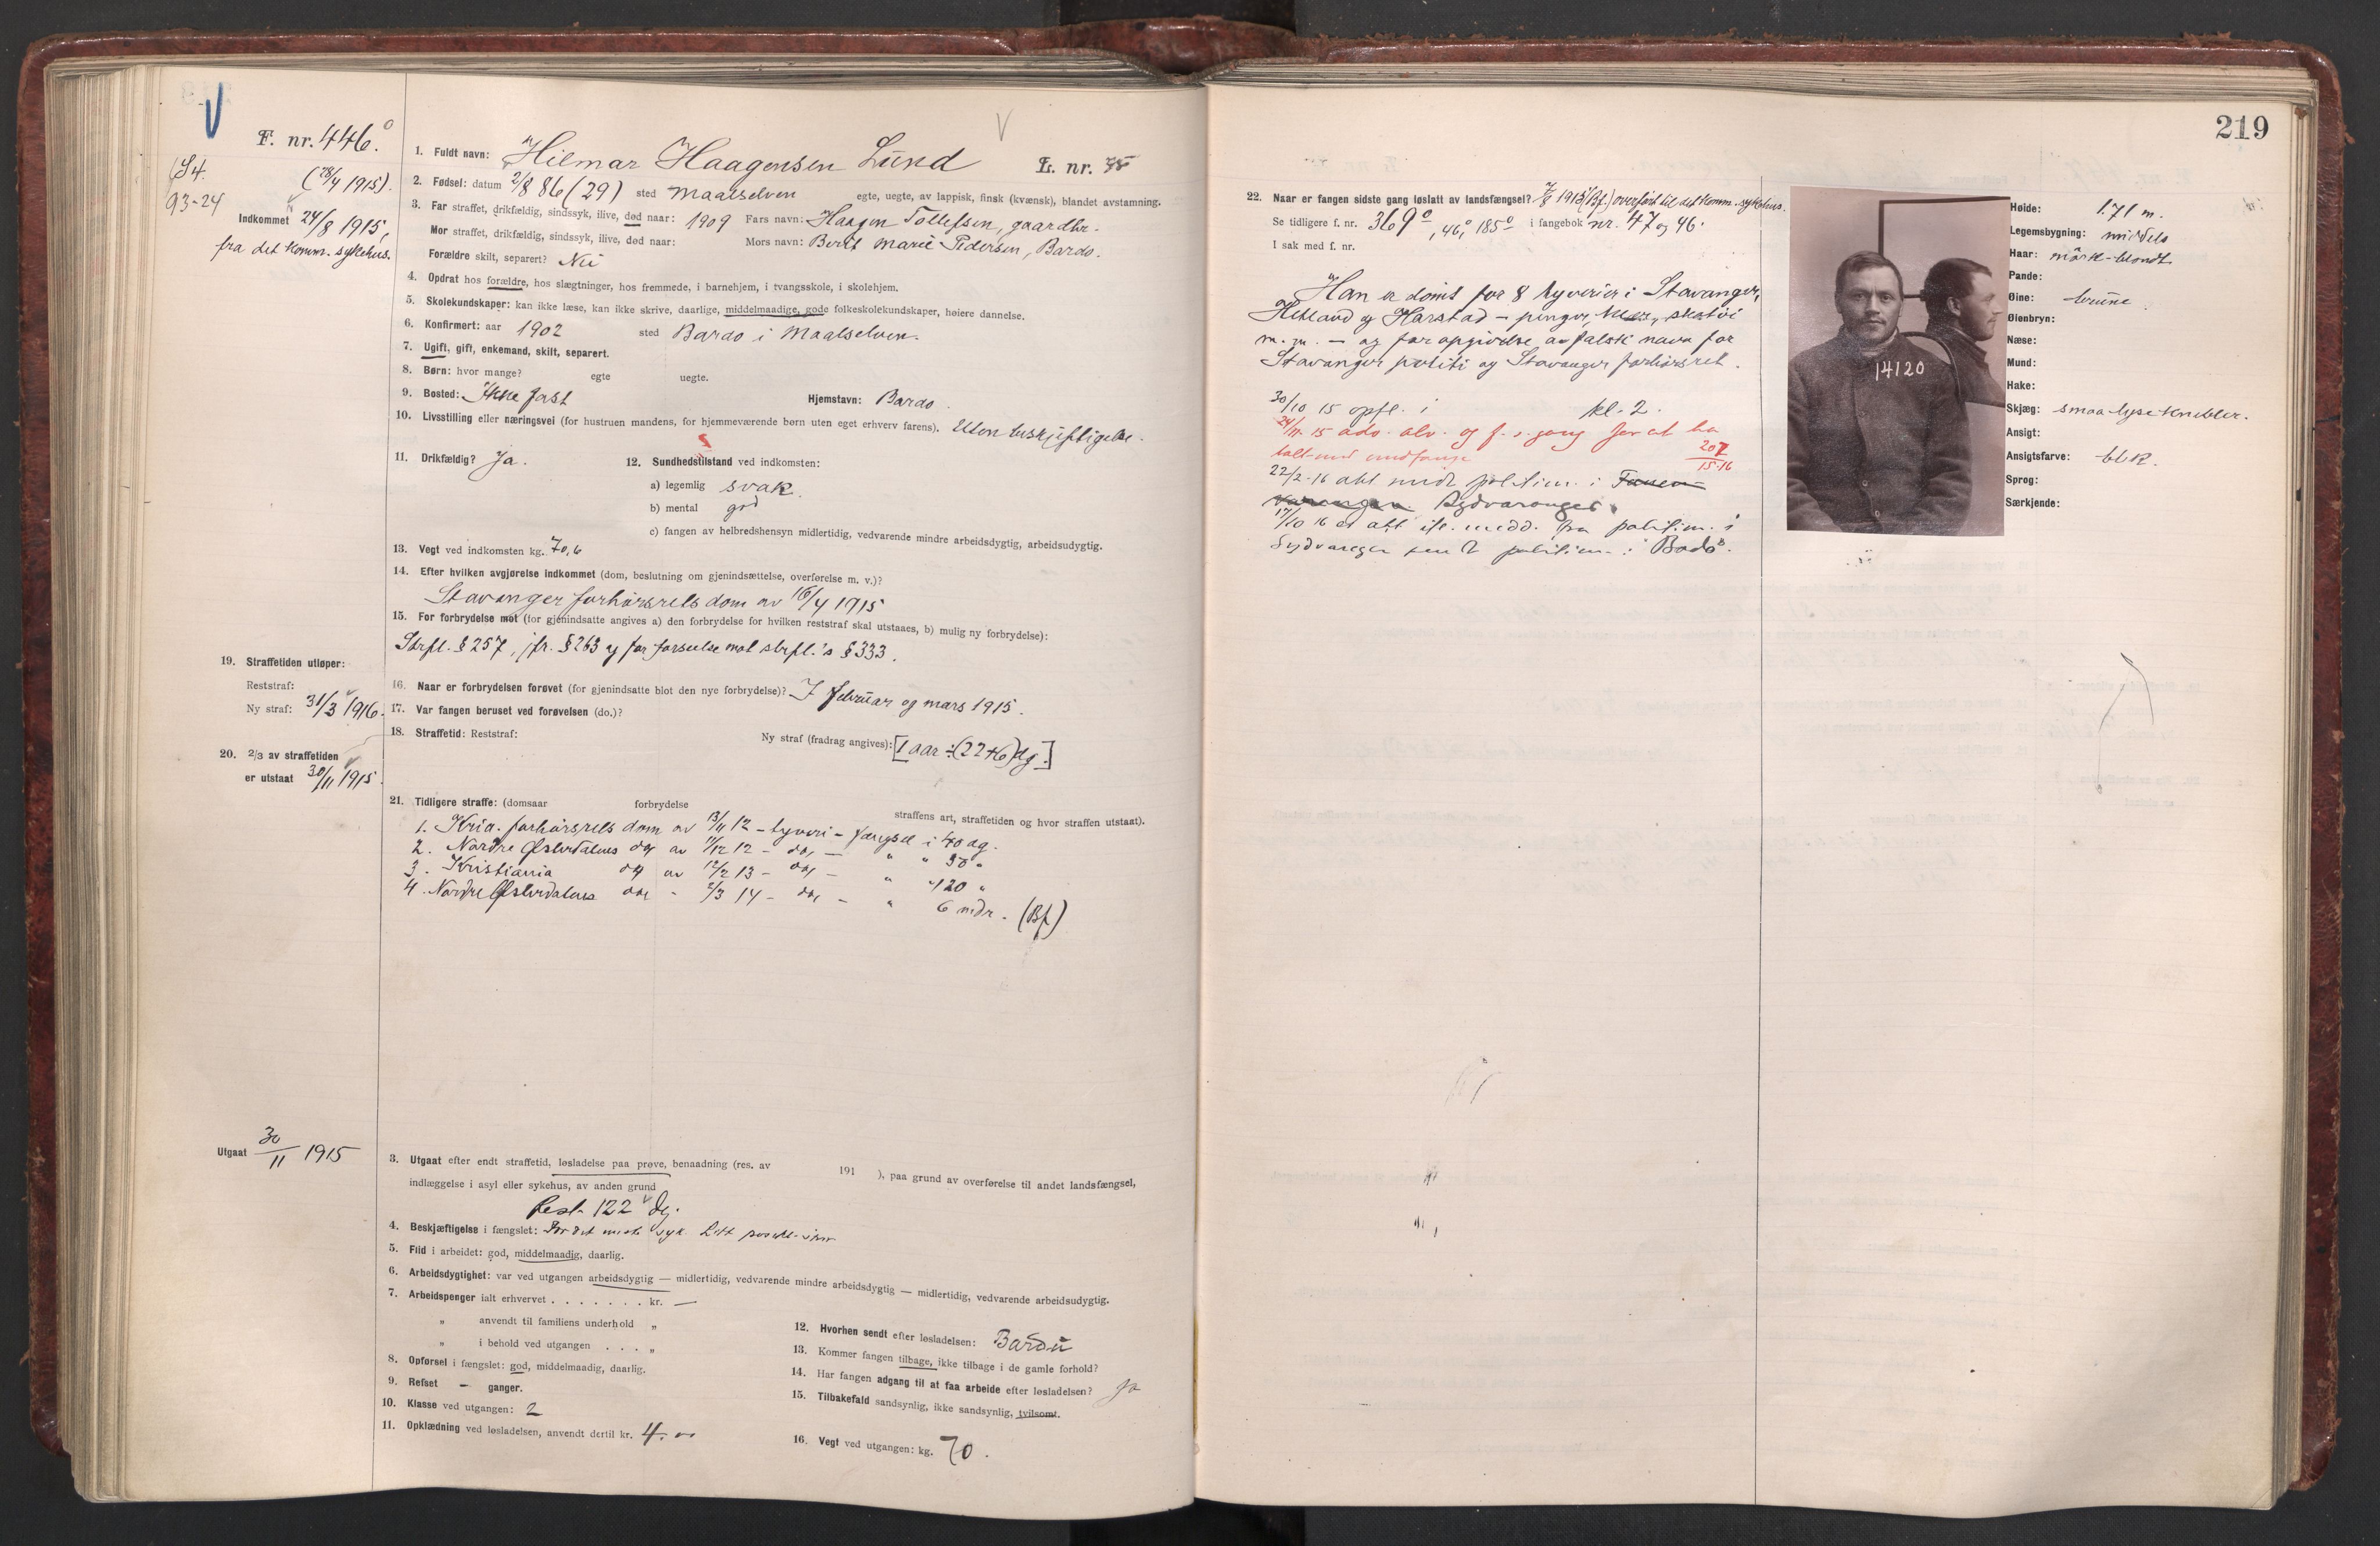 F. nr. 446.
(28/4 1915).
93-24
Indkommet 24/8 1915,
fra det komm. sykehus.
1. Fuldt navn: Hilmar Haagensen Lund L. nr.
2. Fødsel: datum 2/8 86 (29) sted Maalselven egte, uegte, av lappisk, finsk (kvænsk), blandet avstamning.
3. Far straffet, drikfældig, sindssyk, ilive, død naar: 1909 Fars navn: Haagen Tollefsen, gaardbr.
Mor straffet, drikfældig, sindssyk, ilive, død naar: Mors navn: Berit Marie Pedersen, Bardo.
Forældre skilt, separert? Nei
4. Opdrat hos forældre, hos slægtninger, hos fremmede, i barnehjem, i tvangsskole, i skolehjem.
5. Skolekundskaper: kan ikke læse, kan ikke skrive, daarlige, middelmaadige, gode folkeskolekundskaper, høiere dannelse.
6. Konfirmert: aar 1902 sted Bardo i Maalselven.
7. Ugift, gift, enkemand, skilt, separert.
8. Børn: hvor mange? egte uegte.
9. Bosted: Ikke fast Hjemstavn: Bardo.
10. Livsstilling eller næringsvei (for hustruen mandens, for hjemmeværende børn uten eget erhverv farens). Uten beskjeftigelse.
11. Drikfældig? Ja. 12. Sundhedstilstand ved indkomsten:
a) legemlig svak.
b) mental god
c) fangen av helbredshensyn midlertidig, vedvarende mindre arbeidsdygtig, arbeidsudygtig.
13. Vegt ved indkomsten kg. 70,6
14. Efter hvilken avgjørelse indkommet (dom, beslutning om gjenindsættelse, overførelse m. v.)?
Stavanger forhørsrets dom av 16/4 1915
15. For forbrydelse mot (for gjenindsatte angives a) den forbrydelse for hvilken reststraf skal utstaaes, b) mulig ny forbrydelse):
Strfl. § 257, jfr. § 263 og for forseelse mot strfl.'s § 333.
16. Naar er forbrydelsen forøvet (for gjenindsatte blot den nye forbrydelse)? I februar og mars 1915.
17. Var fangen beruset ved forøvelsen (do.)?
18. Straffetid: Reststraf: Ny straf (fradrag angives): [1 aar ÷ (22+6) dg.]
19. Straffetiden utløper:
Reststraf:
Ny straf: 31/3 1916.
20. 2/3 av straffetiden
er utstaat 30/11 1915.
21. Tidligere straffe: (domsaar forbrydelse straffens art, straffetiden og hvor straffen utstaat).
1. Kria. forhørsrets dom av 13/11 12 - tyveri - fængsel i 40 dg.
2. Nordre Østerdalens do, av 11/12 12 - do, - " " 30 "
3. Kristiania do, av 12/2 13 - do, - " " 120 "
4. Nordre Østerdalens do, - 2/3 14 - do, - " 6 mdr. (Bf)
Utgaat 30/11 1915
3. Utgaat efter endt straffetid, løsladelse paa prøve, benaadning (res. av 191 ), paa grund av overførelse til andet landsfængsel,
indlæggelse i asyl eller sykehus, av anden grund
Rest 122 dg.
4. Beskjæftigelse i fængslet: syk. Litt
5. Flid i arbeidet: god, middelmaadig, daarlig.
6. Arbeidsdygtighet: var ved utgangen arbeidsdygtig — midlertidig, vedvarende mindre arbeidsdygtig — midlertidig, vedvarende arbeidsudygtig.
7. Arbeidspenger ialt erhvervet . . . . . . . kr. —
" anvendt til familiens underhold "
" i behold ved utgangen . . . "
8. Opførsel i fængslet: god, middelmaadig, daarlig.
9. Refset — ganger.
10. Klasse ved utgangen: 2
11. Opklædning ved løsladelsen, anvendt dertil kr. 4.
12. Hvorhen sendt efter løsladelsen: Bardu
13. Kommer fangen tilbage, ikke tilbage i de gamle forhold?
14. Har fangen adgang til at faa arbeide efter løsladelsen? Ja
15. Tilbakefald sandsynlig, ikke sandsynlig, tvilsomt.
16. Vegt ved utgangen: kg. 70.
219
22. Naar er fangen sidste gang løslatt av landsfængsel? 1915 (Bf.) overført til det komm. sykehus.
Se tidligere f. nr. 369°, 46°, 185° i fangebok nr. 47 og 46.
I sak med f. nr.
Han er dømt for 8 tyverier i Stavanger,
Hetland og Harstad - penger, klær, skotøi
m. m. - og for opgivelse av falsk navn for
Stavanger politi og Stavanger forhørsret.
30/10 15 opfl. i kl. 2.
24/11 15 adv. alv. og f. 1. gang for at ha
talt med medfange 207/15-16
22/2-16 att medd politim. i
Sydvaranger.
17/10 16 er att medd. fra politim. i
politim. i Bodø.
14120
Høide: 1.71 m.
Legemsbygning: middels
Haar: mørk-blondt
Pande:
Øine: brune
Øienbryn:
Næse:
Mund:
Hake:
Skjæg: smaa lyse knebler.
Ansigt:
Ansigtsfarve: blek.
Sprog:
Særkjende: